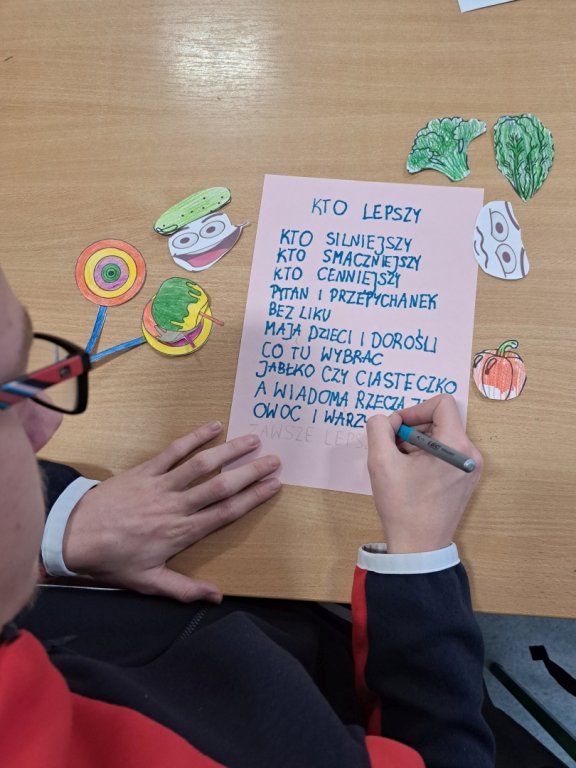 KTO LEPSZY
KTO SILNIEJSZY
KTO SMACZNIEJSZY
KTO CENNIEJSZY
PYTAŃ I PRZEPYCHANEK
BEZ LIKU
MAJĄ DZIECI I DOROŚLI
CO TU WYBRAĆ
JABŁKO CZY CIASTECZKO
A WIADOMA RZECZĄ
OWOC I
ZAWSZE